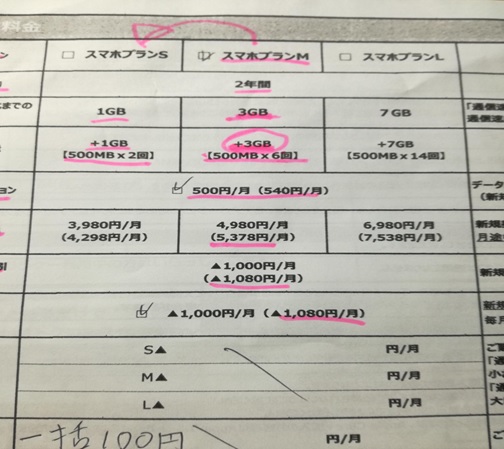 料金
ン □ スマホプランS ☑ スマホプランM □ スマホプランL
2年間
までの 1GB 3GB 7GB 「通信速
通信速
+1GB +3GB +7GB
【500MBx2回】 【500MBx6回】 【500MBx14回】
ョン ☑ 500円/月（540円/月） データ
（新規
3,980円/月 4,980円/月 6,980円/月 新規
(4,298円/月) (5,378円/月) (7,538円/月) 月途
引 ▲1,000円/月 新規
(▲1,080円/月)
☑ ▲1,000円/月（▲1,080円/月） 新規
毎月
S▲ 円/月 ご
「通
M▲ 円/月 小
「通
L▲ 円/月 大
一括100円 円/月 ご